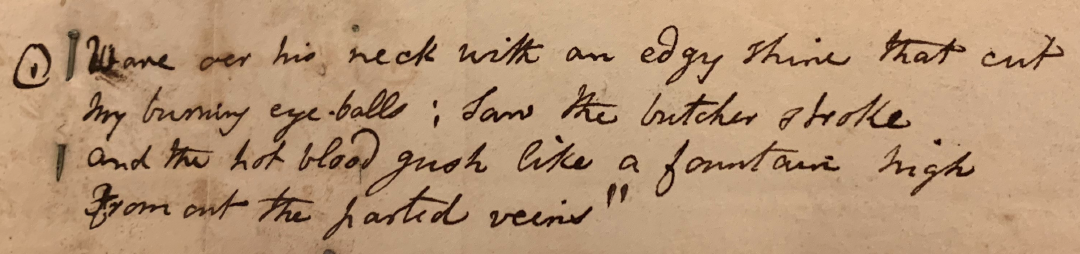 ① Wave oer his neck with an edgy shine that cut
My burning eye-balls ; saw the butcher stroke
and the hot blood gush like a fountain high
From out the parted veins"